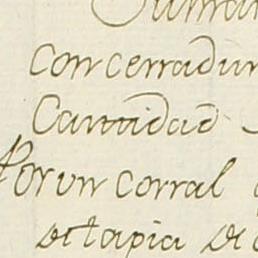 con cerradur
Cantidad
Por un corral
de tapia de